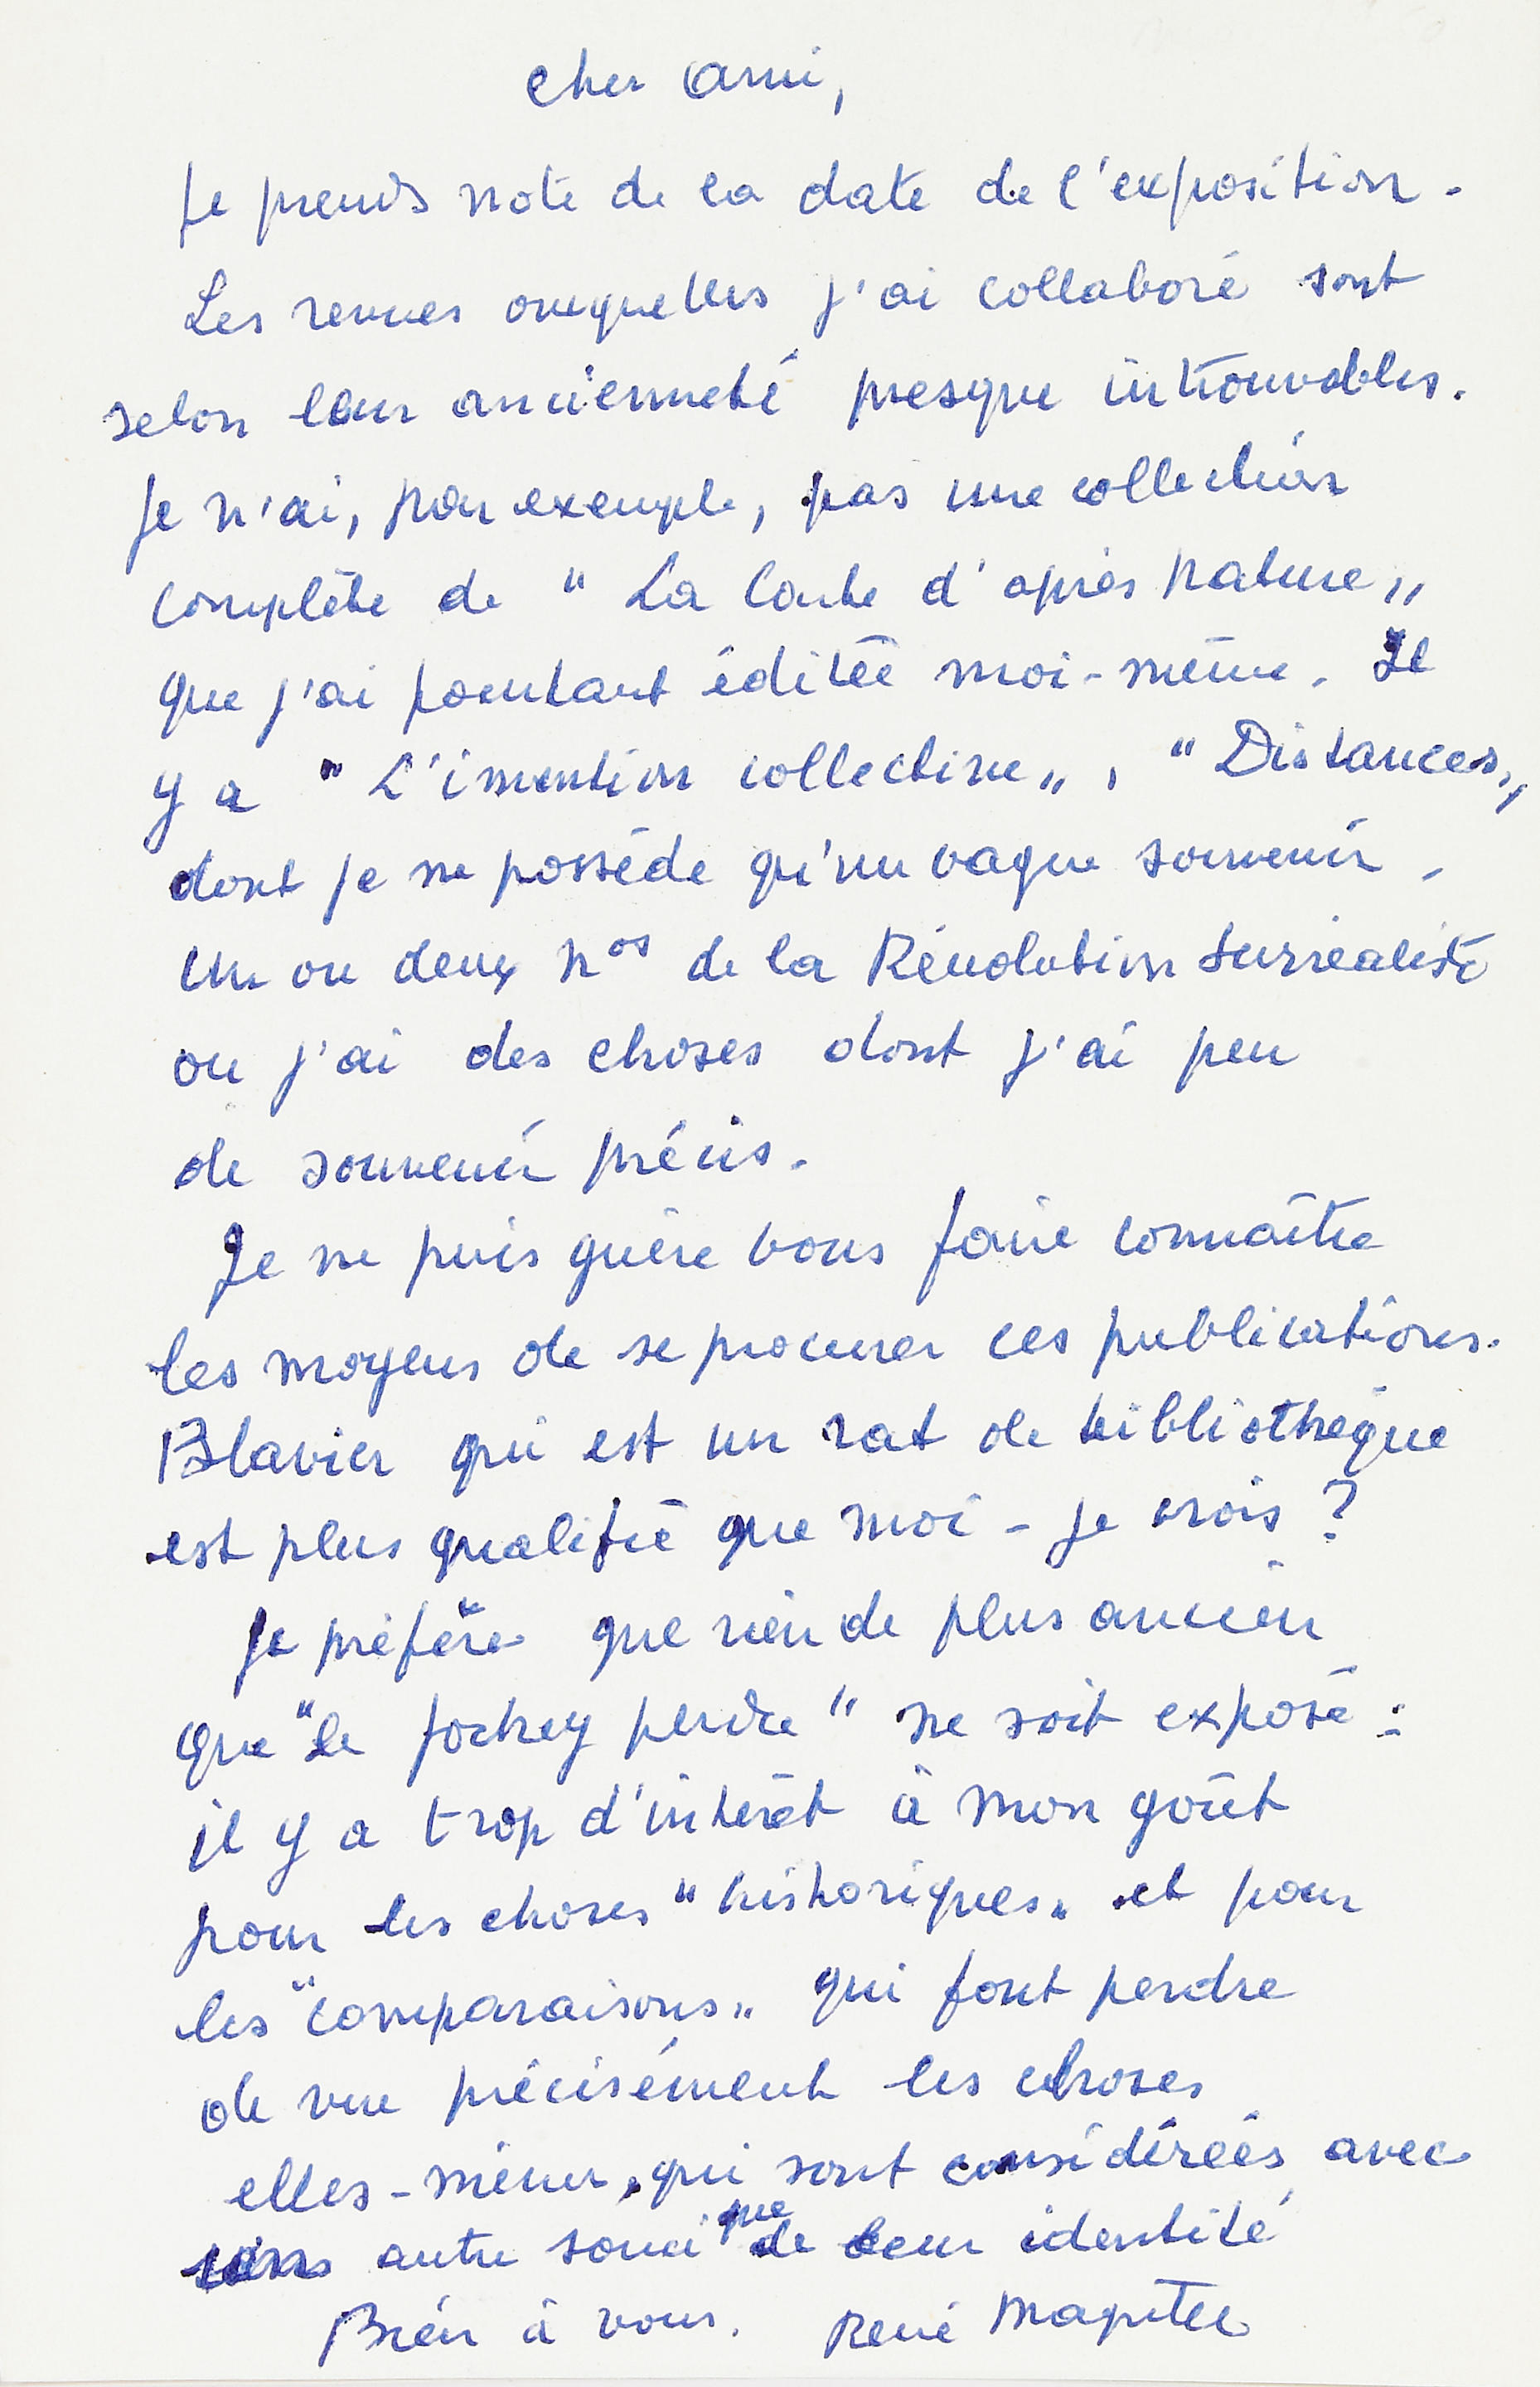 Cher Ami,
Je prends note de la date de l'exposition.
Les revues auxquelles j'ai collaboré sont
selon leur ancienneté presque introuvables.
Je n'ai, par exemple, pas une collection
complète de " La Carte d'après Nature „
que j'ai pourtant éditée moi-même. Il
y a " L'invention collective „ , " Distances „
dont je ne possède qu'un vague souvenir.
Un ou deux nos de la Révolution Surréaliste
ou j'ai des choses dont j'ai peu
de souvenir précis.
Je ne puis guère vous faire connaître
les moyens de se procurer ces publications.
Blavier qui est un rat de bibliothèque
est plus qualifié que moi - je crois ?
Je préfère que rien de plus ancien
que "le jockey perdu" ne soit exposé :
il y a trop d'intérêt à mon goût
pour les choses " historiques „ et pour
les "comparaisons „ qui font perdre
de vue précisément les choses
elles-mêmes, qui sont considérées avec
un autre souci que de leur identité
Bien à vous. René Magritte